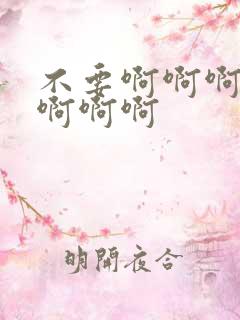 不要啊啊啊
啊啊啊
明開夜合